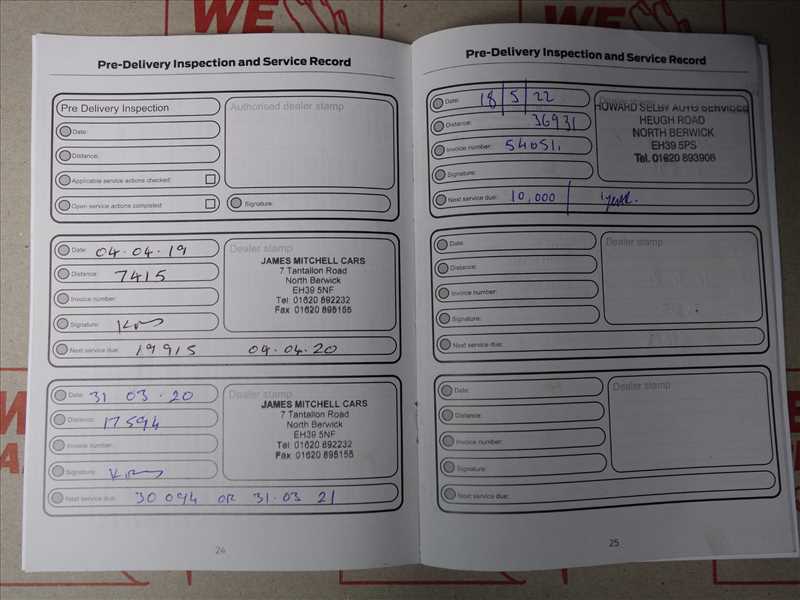 WE
WE
Pre-Delivery Inspection and Service Record
Pre Delivery Inspection
Authorised dealer stamp
Date:
Distance:
Applicable service actions checked:
Open service actions completed:
Signature:
Date: 04.04.19
Distance: 7415
Invoice number:
Signature:
Next service due: 19915 04.04.20
Dealer stamp
JAMES MITCHELL CARS
7 Tantallon Road
North Berwick
EH39 5NF
Tel: 01620 892232
Fax 01620 895155
Date: 31 03 20
Distance: 17594
Invoice number:
Signature:
Next service due: 30 094 OR 31.03 21
Dealer stamp
JAMES MITCHELL CARS
7 Tantallon Road
North Berwick
EH39 5NF
Tel: 01620 892232
Fax 01620 895155
24
Pre-Delivery Inspection and Service Record
Date: 18/5/22
Distance: 36931
Invoice number: 54051.
Signature:
Next service due: 10,000 / 1year.
HOWARD SELBY AUTO SERVICES
HEUGH ROAD
NORTH BERWICK
EH39 5PS
Tel. 01620 893906
Date:
Distance:
Invoice number:
Signature:
Next service due:
Dealer stamp
Date:
Distance:
Invoice number:
Signature:
Next service due:
Dealer stamp
25